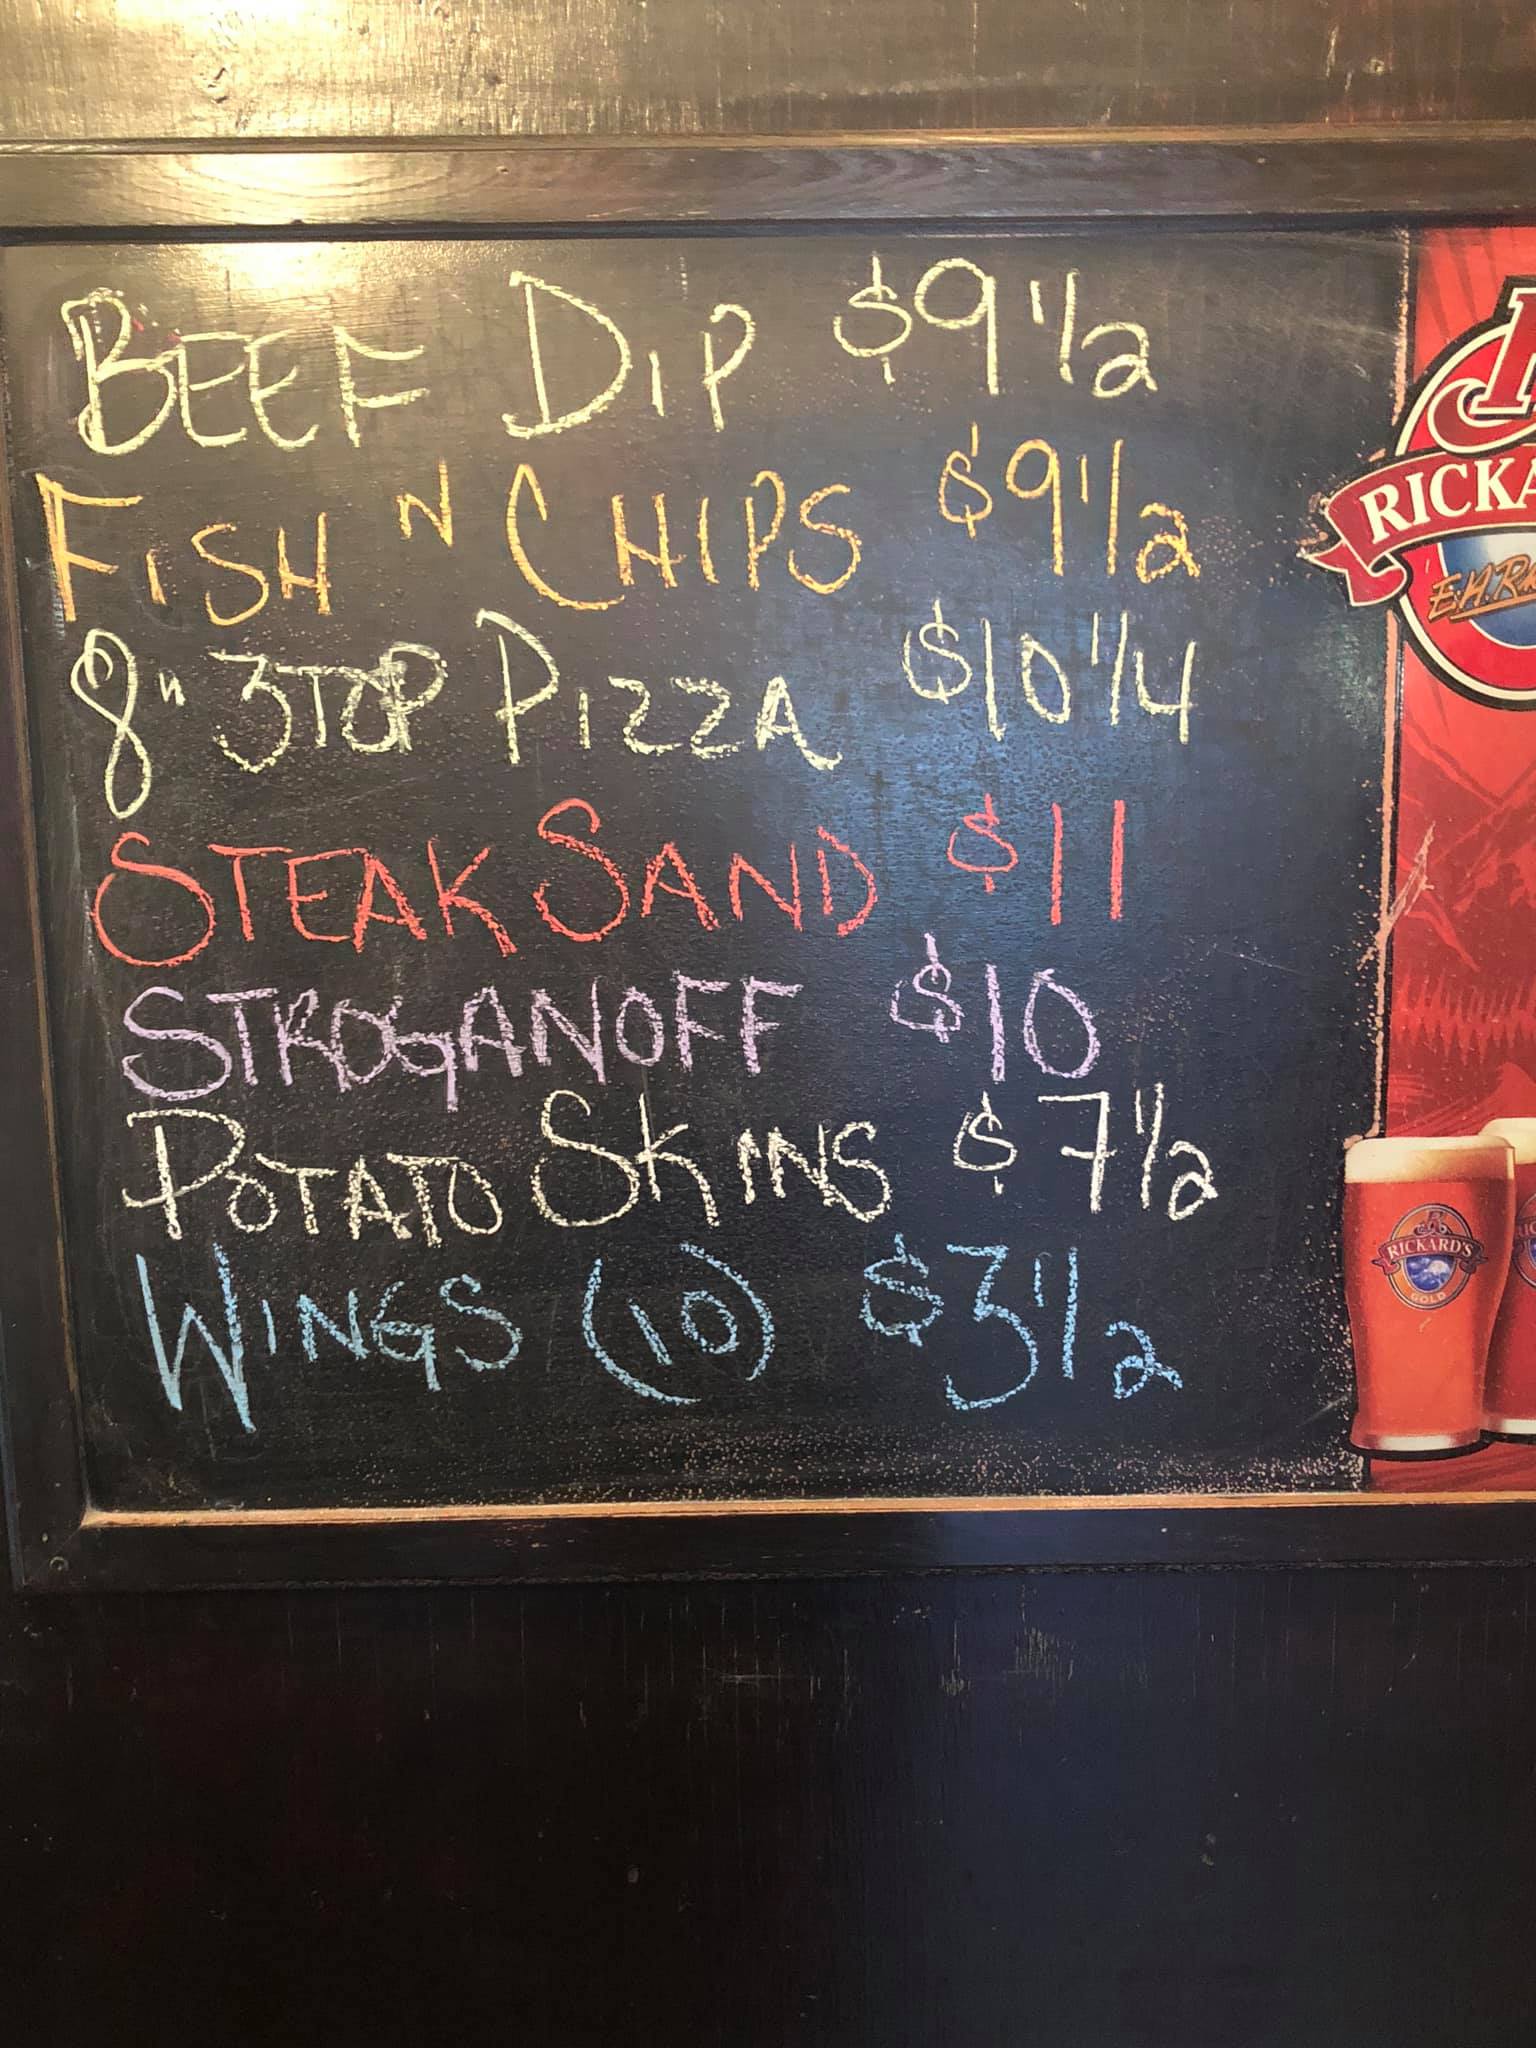 BEEF DIP $9 1/2
FISH N CHIPS $9 1/2
8" 3TOP PIZZA $10 1/4
STEAK SAND $11
STROGANOFF $10
POTATO SKINS $7 1/2
WINGS (10) $3 1/2
RICKARD'S
GOLD